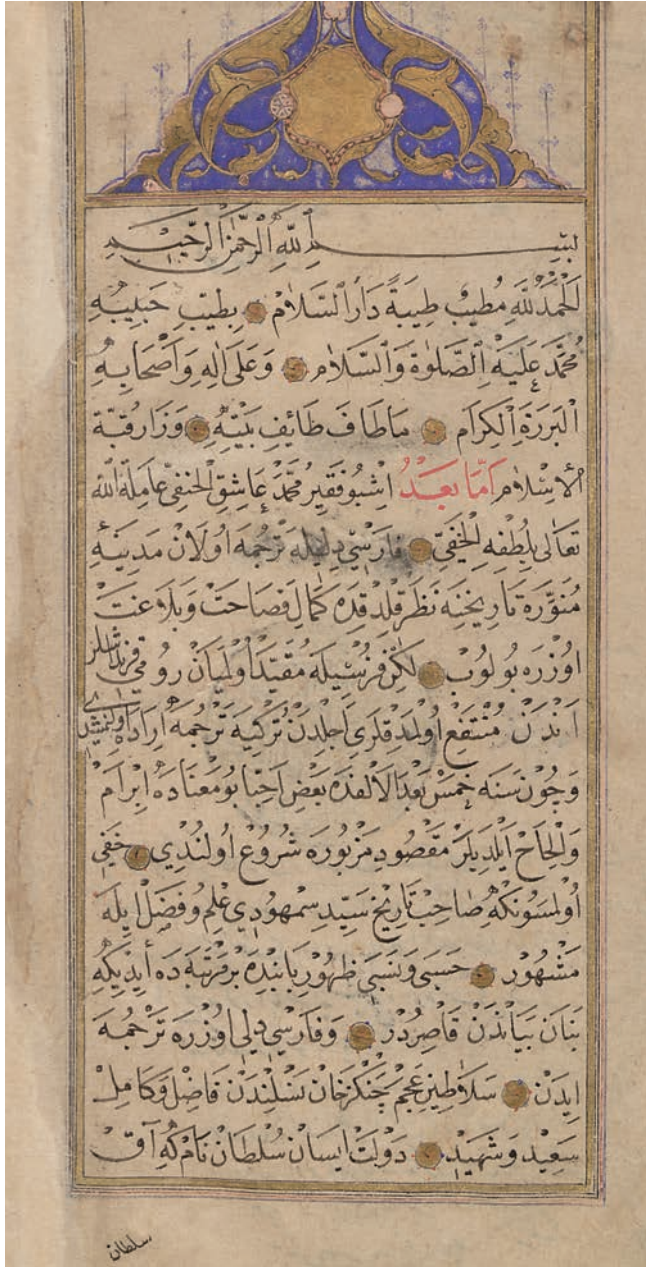 بسم الله الرحمن الرحيم
اَلْحَمْدُ لِلّٰهِ مُطَيِّبِ طِيبَةَ دَارِ السَّلَامْ بِطِيبِ حَبِيبِهِ
مُحَمَّدٍ عَلَيْهِ الصَّلٰوةُ وَالسَّلَامْ وَعَلٰى اٰلِهِ وَاَصْحَابِهِ
الْبَرَرَةِ الْكِرَامْ مَا طَافَ طَائِفٌ بَيْتِهِ وَزَارَ قُبَّةَ
الْاِسْلَامِ اَمَّا بَعْدُ اشبو فقير محمد عاشق الحنفى عامله الله
تعالى بلطفه الخفى فارسى ديليله ترجمه اولان مدينه
منوره تاريخنه نظر قلدقده كمال فصاحت وبلاغت
اوزره بولوب لكن فرسيله مقيد اولميان رومى قرنداشلر
اندن منتفع اولمدقلرى اجلدن تركيه ترجمه اراده اولنمشدى
وچون سنه خمس بعد الالفده بعض احبا بو معناده ابرام
والحاح ايلديلر مقصود مزبوره شروع اولندى خفى
اولمسونكه صاحب تاريخ سيد سمهودى علم وفضل ايله
مشهور حسبى ونسبى ظهورى بابنده بر مرتبه ده ايديكه
بنان بياندن قاصردر وفارسى ديلى اوزره ترجمه
ايدن سلاطين عجم چنكزخان نسلندن فاضل وكامل
سعيد وشهيد دولت ايسان سلطان نام كه آق
سلطان